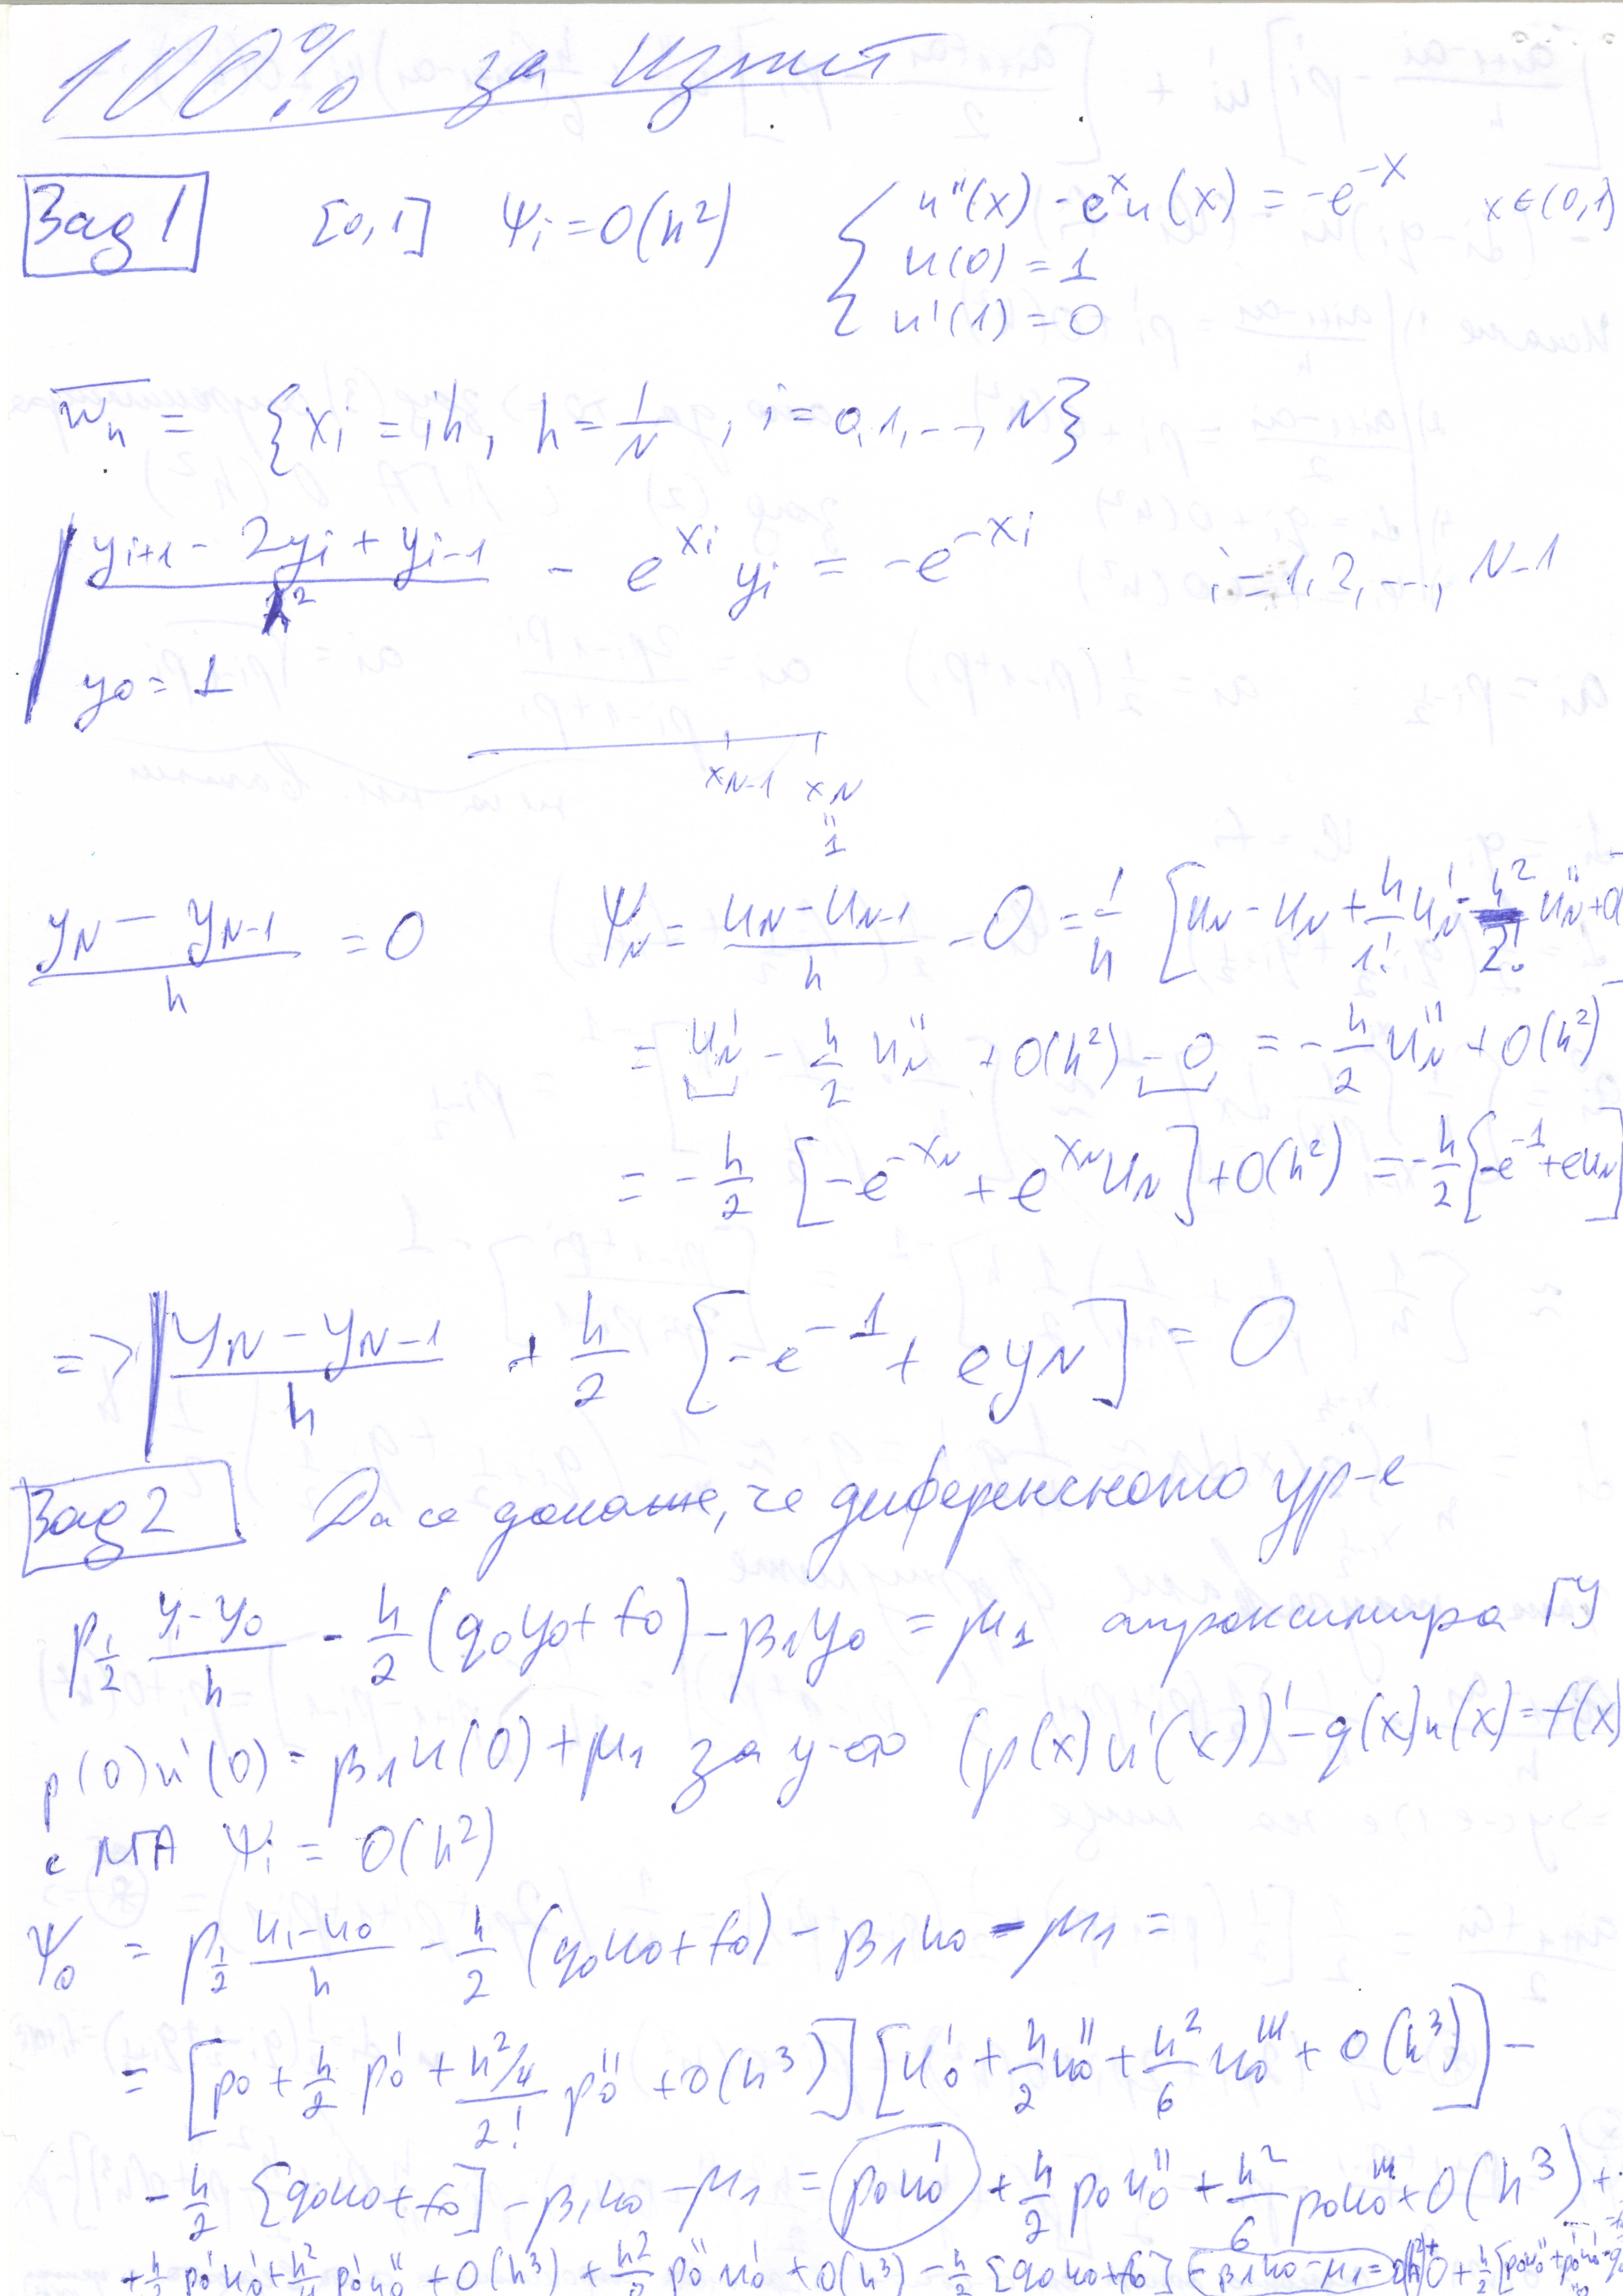 100% за изпит
Зад 1 [0,1] Ψi = O(h²) { u''(x) - eˣu(x) = -e⁻ˣ x∈(0,1)
u(0) = 1
u'(1) = 0
w̅h = {xi = ih, h = 1/N, i = 0,1,..., N}
(yi+1 - 2yi + yi-1)/h² - e^xi yi = -e^-xi i = 1,2,..., N-1
y0 = 1
xN-1 xN
"
1
(yN - yN-1)/h = 0 ΨN = (uN - uN-1)/h - 0 = 1/h [uN - uN + h/1! u'N - h²/2! u''N + O
= u'N - h/2 u''N + O(h²) - 0 = -h/2 u''N + O(h²)
= -h/2 [-e^-xN + e^xN uN] + O(h²) = -h/2 [-e⁻¹ + euN]
=> (yN - yN-1)/h + h/2 [-e⁻¹ + eyN] = 0
Зад 2 Да се докаже, че диференчното ур-е
p½ (y1 - y0)/h - h/2 (q0y0 + f0) - β1y0 = μ1 апроксимира ГУ
p(0)u'(0) = β1u(0) + μ1 за у-то (p(x)u'(x))' - q(x)u(x) = f(x)
с ЛГА Ψi = O(h²)
Ψ0 = p½ (u1 - u0)/h - h/2 (q0u0 + f0) - β1u0 - μ1 =
= [p0 + h/2 p'0 + (h²/4)/2! p''0 + O(h³)] [u'0 + h/2 u''0 + h²/6 u'''0 + O(h³)] -
- h/2 [q0u0 + f0] - β1u0 - μ1 = p0u'0 + h/2 p0u''0 + h²/6 p0u'''0 + O(h³) +
+ h/2 p'0u'0 + h²/4 p'0u''0 + O(h³) + h²/8 p''0u'0 + O(h³) - h/2 [q0u0 + f0] - β1u0 - μ1 =